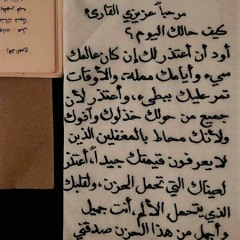 مرحباً عزيزي القارئ
كيف حالك اليوم ؟
أود أن أعتذر لك إن كان عالمك
سيء وأيامك مملة، والأوقات
تمر عليك ببطء، وأعتذر لأن
جميع من حولك خذلوك وآذوك
ولأنك محاط بالمغفلين الذين
لا يعرفون قيمتك جيداً، أعتذر
لعيناك التي تحمل الحزن، ولقلبك
الذي يتحمل الألم، أنت جميل
وأجمل من هذا الحزن صدقني